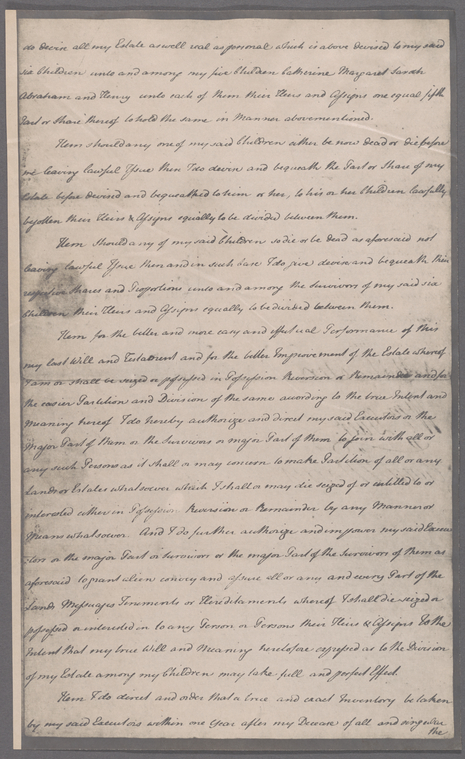 do devise all my Estate as well real as personal which is above devised to my said
six Children unto and among my five Children Catherine Margaret Sarah
Abraham and Henry unto each of them their Heirs and Assigns one equal fifth
Part or Share thereof to hold the same in Manner abovementioned.
Item should any one of my said Children either be now dead or die before
me leaving lawful Issue then I do devise and bequeath the Part or Share of my
Estate before devised and bequeathed to him or her, to his or her Children lawfully
begotten their Heirs & Assigns equally to be divided between them.
Item should any of my said Children so die or be dead as aforesaid not
leaving lawful Issue then and in such Case I do give devise and bequeath their
respective shares and Proportions unto and among the Survivors of my said six
Children their Heirs and Assigns equally to be divided between them.
Item for the better and more easy and effectual Performance of this
my last Will and Testament and for the better Improvement of the Estate whereof
I am or shall be seized or possessed in Possession Reversion or Remainder and for
the easier Partition and Division of the same according to the true Intent and
Meaning hereof I do hereby authorize and direct my said Executors or the
Major Part of them or the Survivors or major Part of them to join with all or
any such Persons as it shall or may concern to make Partition of all or any
Lands or Estates whatsoever which I shall or may die seized of or entitled to or
interested either in Possession Reversion or Remainder by any Manner or
Means whatsoever. And I do further authorize and impower my said Execu
tors or the major Part or survivors or the major Part of the Survivors of them as
aforesaid to grant alien convey and assure all or any and every Part of the
Lands Messuages Tenements or Hereditaments whereof I shall die seized or
possessed or interested in to any Person or Persons their Heirs & Assigns To the
Intent that my true Will and Meaning heretofore expressed as to the Division
of my Estate among my Children may take full and perfect Effect.
Item I do direct and order that a true and exact Inventory be taken
by my said Executors within one Year after my Decease of all and singular
the